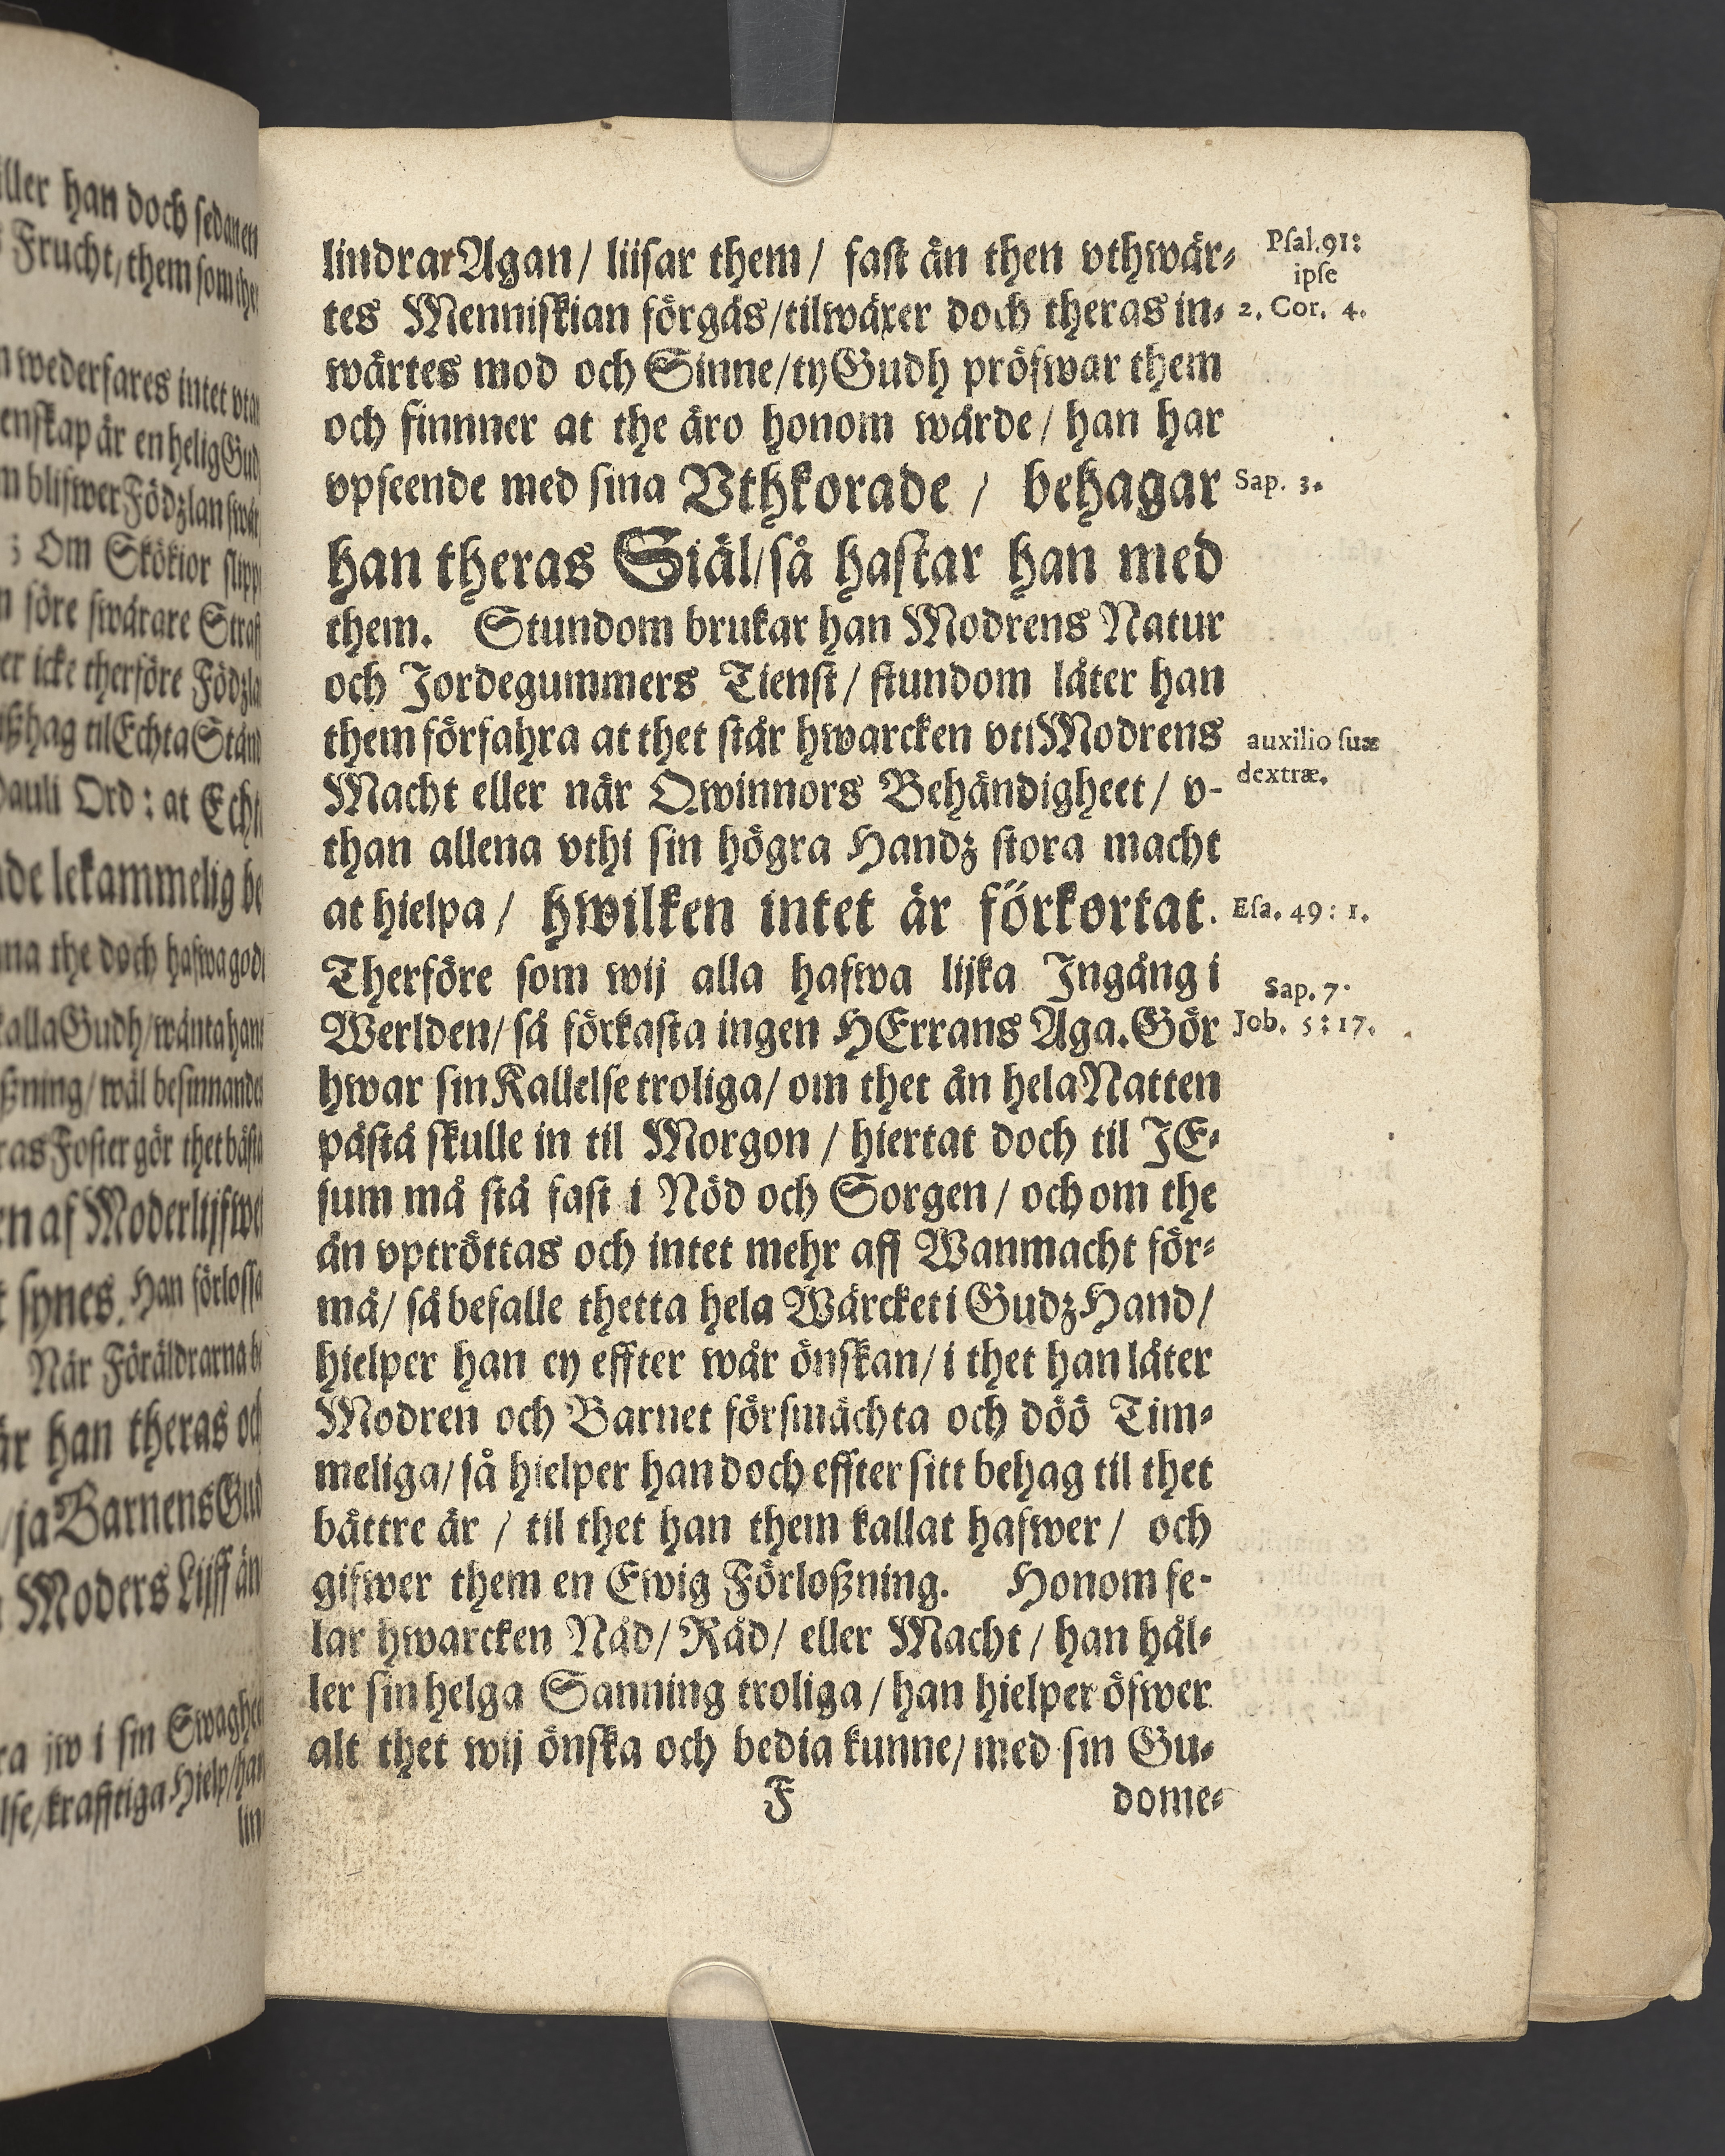 lindrar Agan / liisar them / fast än then vthwär⸗
tes Menniskian förgås / tilwäxer doch theras in⸗
wärtes mod och Sinne / ty Gudh pröfwar them
och finnner at the äro honom wärde / han har
vpseende med sina Vthkorade / behagar
han theras Siäl / så hastar han med
them. Stundom brukar han Modrens Natur
och Jordegummers Tienst / stundom låter han
them förfahra at thet står hwarcken vti Modrens
Macht eller när Qwinnors Behändigheet / v-
than allena vthi sin högra Handz stora macht
at hielpa / hwilken intet är förkortat.
Therföre som wij alla hafwa lijka Ingång i
Werlden / så förkasta ingen HErrans Aga. Gör
hwar sin Kallelse troliga / om thet än hela Natten
påstå skulle in til Morgon / hiertat doch til JE⸗
sum må stå fast i Nöd och Sorgen / och om the
än vptröttas och intet mehr aff Wanmacht för⸗
må / så befalle thetta hela Wärcket i Gudz Hand /
hielper han ey effter wår önskan / i thet han låter
Modren och Barnet försmächta och döö Tim⸗
meliga / så hielper han doch effter sitt behag til thet
bättre är / til thet han them kallat hafwer / och
gifwer them en Ewig Förloßning. Honom fe-
lar hwarcken Nåd / Råd / eller Macht / han häl⸗
ler sin helga Sanning troliga / han hielper öfwer
alt thet wij önska och bedia kunne / med sin Gu⸗
F dome⸗
Psal. 91:
ipse
2. Cor. 4.
Sap. 3.
auxilio suæ
dextræ.
Esa. 49: 1.
Sap. 7.
Job. 5: 17.
han doch sedan en
Frucht / them som
wederfares intet
är en helig
blifwer Födzlan
Om Skökior
före swårare
icke therföre
hag til Echta
Ord: at
lekammelig
the doch hafwa
Gudh / wänta
wäl besinnande
Foster gör thet
af
synes. Han
När Föräldrarna
han theras
ja Barnens
Moders Lijff än
i sin
krafftiga Hielp /
lin